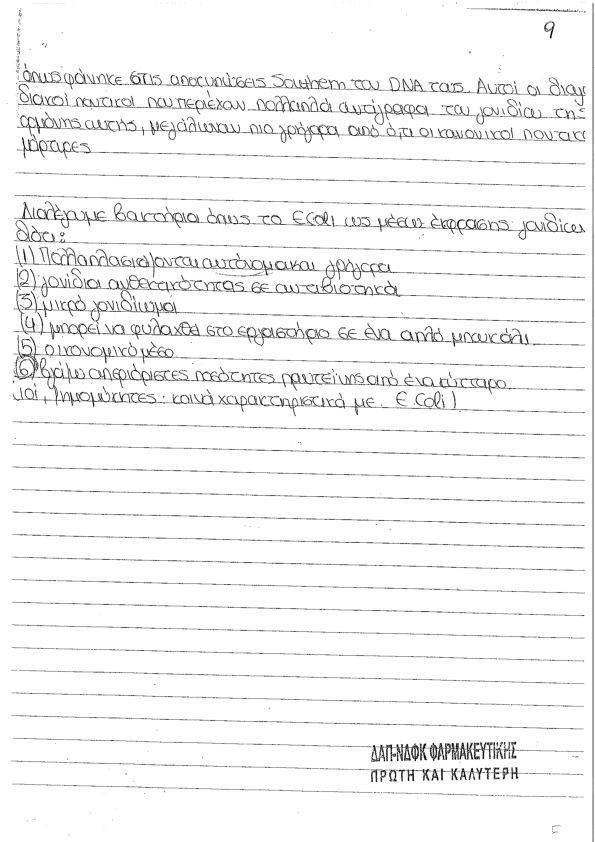 9
όπως φάνηκε στις αποτυπώσεις Southern του DNA τους. Αυτοί οι διαγο
διακοί ποντικοί που περιείχαν πολλαπλά αντίγραφα του γονιδίου της
ορμόνης αυτής, μεγάλωναν πιο γρήγορα από ό,τι οι κανονικοί ποντικοί
μάρτυρες
Διαλέγουμε βακτήρια όπως το E Coli ως μέσων έκφρασης γονιδίων
διότι:
(1) Πολλαπλασιάζονται αυτόνομα και γρήγορα
(2) γονίδια ανθεκτικότητας σε αντιβιοτικά
(3) μικρό γονιδίωμα
(4) μπορεί να φυλαχθεί στο εργαστήριο σε ένα απλό μπουκάλι
(5) οικονομικό μέσο
(6) βγάζω απεριόριστες ποσότητες πρωτεΐνης από ένα κύτταρο
ιοί, ζυμομύκητες: κοινά χαρακτηριστικά με E. Coli!
ΔΑΠ-ΝΔΦΚ ΦΑΡΜΑΚΕΥΤΙΚΗΣ
ΠΡΩΤΗ ΚΑΙ ΚΑΛΥΤΕΡΗ